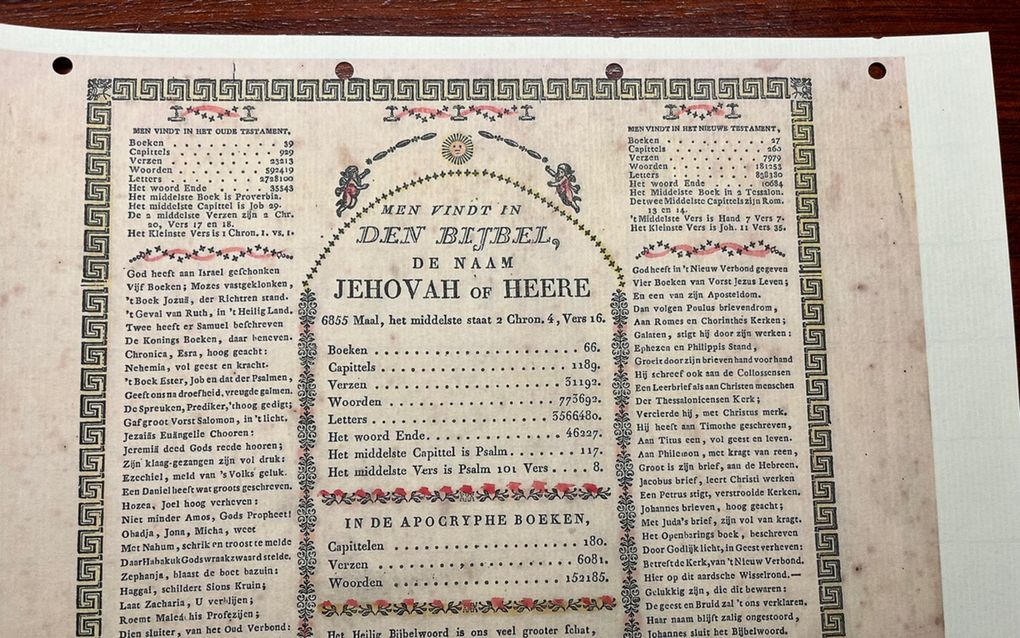 MEN VINDT IN HET OUDE TESTAMENT,
Boeken . . . . . . . . . . 39
Capittels . . . . . . . . . 929
Verzen . . . . . . . . . 23213
Woorden . . . . . . . . 592419
Letters . . . . . . . . 2728100
Het woord Ende . . . . . 35543
Het middelste Boek is Proverbia.
Het middelste Capittel is Job 29.
De 2 middelste Verzen zijn 2 Chr.
20, Vers 17 en 18.
Het Kleinste Vers is 1 Chron. 1. vs. 1.
God heeft aan Israel geschonken
Vijf Boeken; Mozes vastgeklonken,
't Boek Jozuä, der Richtren stand.
't Geval van Ruth, in 't Heilig Land.
Twee heeft er Samuel beschreven
De Konings Boeken, daar beneven.
Chronica, Esra, hoog geacht:
Nehemia, vol geest en kracht.
't Boek Ester, Job en dat der Psalmen,
Geeft ons na droefheid, vreugde galmen.
De Spreuken, Prediker, 't hoog gedigt;
Gaf groot Vorst Salomon, in 't licht.
Jezaiäs Euängelie Chooren:
Jeremiä deed Gods reede hooren;
Zijn klaag-gezangen zijn vol druk:
Ezechiel, meld van 's Volks geluk.
Een Daniel heeft wat groots geschreven.
Hozea, Joel hoog verheven:
Niet minder Amos, Gods Propheet!
Obadja, Jona, Micha, weet
Met Nahum, schrik en troost te melde
Daar Habakuk Gods wraak zwaard stelde.
Zephanja, blaast de boet bazuin:
Haggaï, schildert Sions Kruin;
Laat Zacharia, U verblijen;
Roemt Maleachis Profezijen;
Dien sluiter, van het Oud Verbond:
MEN VINDT IN
DEN BIJBEL,
DE NAAM
JEHOVAH OF HEERE
6855 Maal, het middelste staat 2 Chron. 4, Vers 16.
Boeken . . . . . . . . . . 66.
Capittels . . . . . . . . . 1189.
Verzen . . . . . . . . . 31192.
Woorden . . . . . . . . 773692.
Letters . . . . . . . . 3566480.
Het woord Ende. . . . . . . 46227.
Het middelste Capittel is Psalm . . . . 117.
Het middelste Vers is Psalm 101 Vers . . . 8.
IN DE APOCRYPHE BOEKEN,
Capittelen . . . . . . . . . 180.
Verzen . . . . . . . . . 6081.
Woorden . . . . . . . . 152185.
Het Heilig Bijbelwoord is ons veel grooter schat,
MEN VINDT IN HET NIEUWE TESTAMENT,
Boeken . . . . . . . . . . 27
Capittels . . . . . . . . . 260
Verzen . . . . . . . . . 7979
Woorden . . . . . . . . 181253
Letters . . . . . . . . 838380
Het woord Ende . . . . . 10684
Het Middelste Boek in 2 Tessalon.
De twee Middelste Capittels zijn Rom.
13 en 14.
't Middelste Vers is Hand 7 Vers 7.
Het Kleinste Vers is Joh. 11 Vers 35.
God heeft in 't Nieuw Verbond gegeven
Vier Boeken van Vorst Jezus Leven;
En een van zijn Aposteldom.
Dan volgen Poulus brievendrom,
Aan Romes en Chorinthës Kerken;
Galaten, stigt hij door zijn werken:
Ephezen en Philippis Stand,
Groeit door zijn brieven hand voor hand
Hij schreef ook aan de Collossensen
Een Leerbrief als aan Christen menschen
Der Thessalonicensen Kerk;
Vercierde hij, met Christus merk.
Hij heeft aan Timothe geschreven,
Aan Titus een, vol geest en leven.
Aan Philemon, met kragt van reen,
Groot is zijn brief, aan de Hebreen.
Jacobus brief, leert Christi werken
Een Petrus stigt, verstrooide Kerken.
Johannes brieven, hoog geacht;
Met Juda's brief, zijn vol van kragt.
Het Openbarings boek, beschreven
Door Godlijk licht, in Geest verheven:
Betreft de Kerk, van 't Nieuw Verbond.
Hier op dit aardsche Wisselrond.—
Gelukkig zijn, die dit bewaren:
De geest en Bruid zal 't ons verklaren.
Haar naam blijft zalig ongestoord,
Johannes sluit het Bijbelwoord.